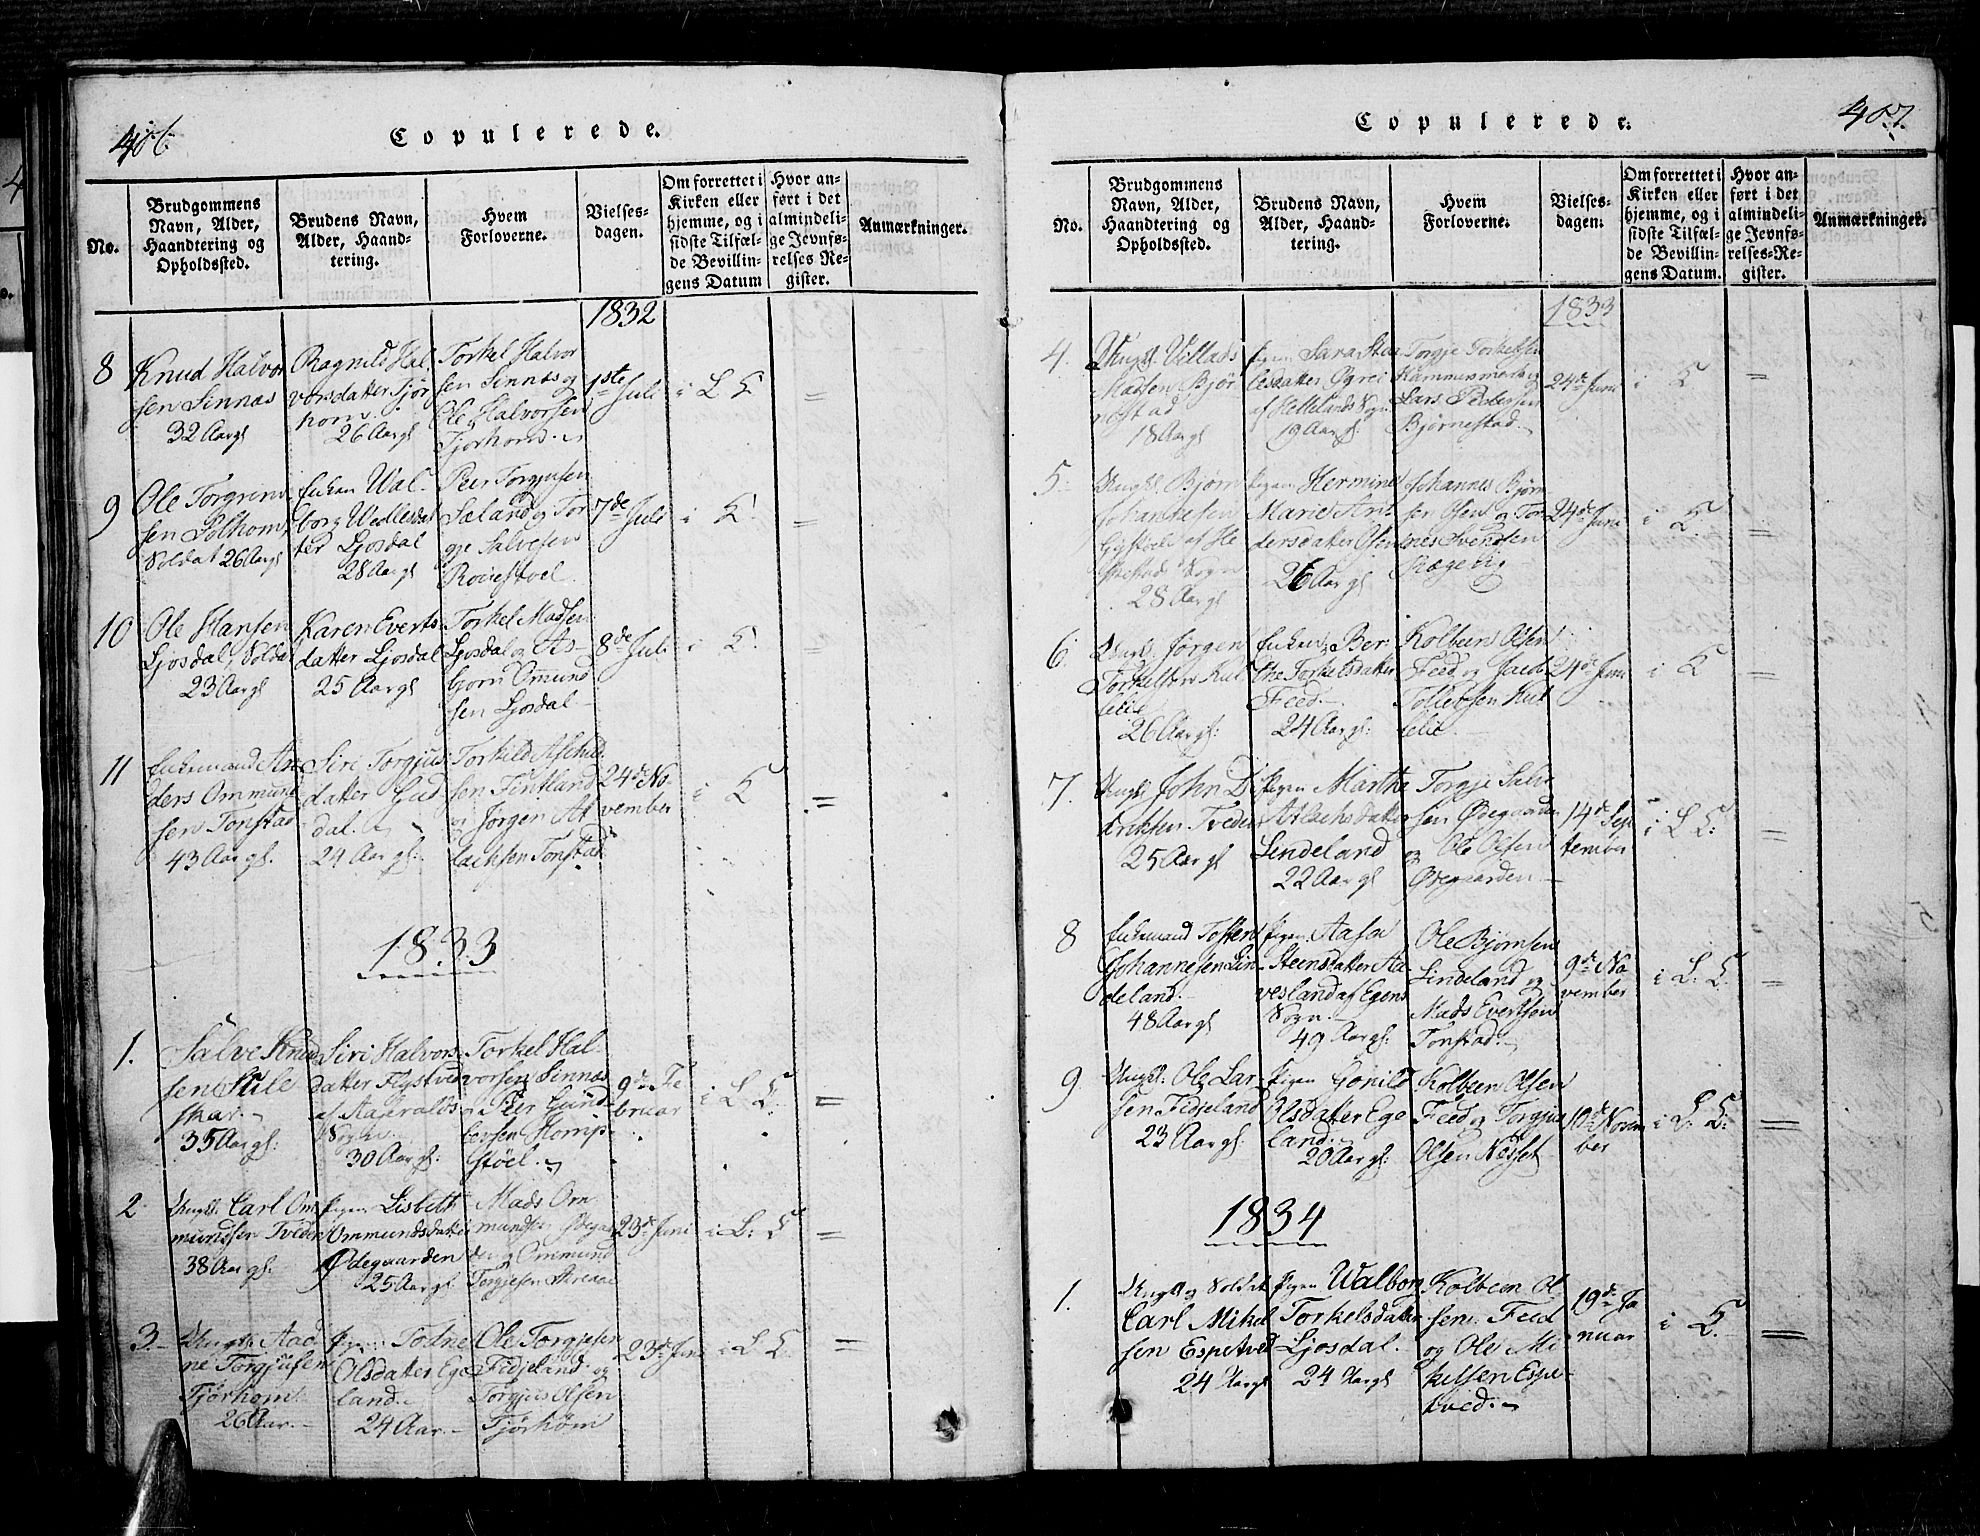 406.
Copulerede.
No.
Brudgommens
Navn, Alder,
Haandtering og
Opholdssted.
Brudens Navn,
Alder, Haand-
tering.
Hvem
Forloverne.
Vielses-
dagen.
Om forrettet i
Kirken eller
hjemme, og i
sidste Tilfæl-
de Bevillin-
gens Datum
Hvor an-
ført i det
almindeli-
ge Jevnfø-
relses Re-
gister.
Anmærkninger.
1832
8
Knud Halvor
sen Sinnæs
32 Aar gl
Ragnild Hal
vorsdatter Tjør
hom
26 Aar gl
Torkel Halvor
sen Sinnæs og
Ole Halvorsen
Tjørhom
1ste Juli
i L K
=
9
Ole Torgrims
sen Solhom,
Soldat 26 Aar gl
Enken Wal-
borg Wedlesdat
ter Ljosdal
28 Aar gl
Peer Torgjusen
Sæland og Tor
gje Salvesen
7de Juli
i K
=
10
Ole Hansen
Ljosdal, Soldat
23 Aar gl
Karen Everts
datter Ljosdal
25 Aar gl
Torkel Madsen
Ljosdal og As-
bjørn Omund
sen Ljosdal
8de Juli
i K
=
11
Enkemand An
ders Ommund
sen Tonstad
43 Aar gl.
Siri Torgjus
datter Gud
dal.
24 Aar gl:
Torkild Aschild
sen Fintland
og Jørgen At
lacksen Tonstad
24de No
vember
i K
=
1833
1.
Salve Knud
sen Stile
skar
35 Aar gl.
Siri Halvors
datter Flystved
af Aaseralds
Sogn
30 Aar gl:
Torkel Hal-
vorsen Sinnæs
og Peer Gund-
lersen Homp
støel.
9de Fe
bruar
i L K.
=
2
Ungk: Carl Om
mundsen Tveden
38 Aar gl.
Pigen Lisbeth
Ommundsdatter
Ødegaarden
25 Aar gl
Mads Om
mundsen Ødegaar
den og Ommund
Torgjesen
23de Juni
i L: K
=
3
Ungk: Aad
ne Torgjusen
Tjørhom
26 Aar.
Pigen Todne
Olsdatter Ege
land.
24 Aar.
Ole Torgjesen
Fidjeland og
Torgjus Olsen
Tjørhom
23de Juni
i L K.
=
407.
Copulerede.
No.
Brudgommens
Navn, Alder,
Haandtering og
Opholdssted.
Brudens Navn,
Alder, Haand-
tering.
Hvem
Forloverne.
Vielses-
dagen.
Om forrettet i
Kirken eller
hjemme, og i
sidste Tilfæl-
de Bevillin-
gens Datum.
Hvor an-
ført i det
almindeli-
ge Jevnfø-
relses-Re-
gister.
Anmærkninger.
1833
4.
Ungk: Villads
Madsen Bjør
nestad
18 Aar gl
Pigen Sara Sta
lesdatter Øgrei
af Hellelands Sogn
19 Aar gl:
Torgje Torkelsen
Hammersmark og
Lars Pedersen
Bjørnestad.
24de Juni
i K
=
5.
Ungk: Bjørn
Johannesen
af He
skestad Sogn
28 Aar gl
Pigen Hermine
Marie An
dersdatter Osen
26 Aar gl
Johannes Bjørn
sen Osen og Tor
nes Svendsen
Rægelig
24de Juni
i K.
=
6.
Ungk. Jørgen
Torkelsen Kut
lelid
26 Aar gl:
Enken Ber
the Torkelsdatter
Feed
24 Aar gl:
Kolbeen Olsen
Feed og
Tollevsen Kut
lelid
24de Juni
i K
=
7.
Ungk: John D
dricksen Tveden
25 Aar gl
Pigen Martha
Atlachsdatter
Lindeland
22 Aar gl
Torgje Salve
sen Ødegaarden
og Ole Olsen
Ødegaarden.
14de Sep
tember
i L K:
=
8
Enkemand Tosten
Johannesen Lin
deland.
48 Aar gl
Pigen Aasa
Steensdatter Aa
vesland af Egers
Sogn.
49 Aar gl:
Ole Bjørnsen
Lindeland og
Mads Evertsen
Tonstad.
9de No
vember
i L. K.
=
9
Ungk: Ole Lar
sen Fidjeland
23 Aar gl.
Pigen Gonild
Olsdatter Ege
land.
20 Aar gl:
Kolbeen Olsen
Feed og Torgjus
Olsen Nesset
10de Novem
ber
i L. K:
=
1834
1.
Ungk og Soldat
Carl Mikel
sen Espetved
24 Aar gl
Pigen Walborg
Torkelsdatter
Ljosdal.
24 Aar gl
Kolbeen Ol
sen Feed
og Ole Mi
kelsen Espe-
tved.
19de Ja
nuar
i K.
=